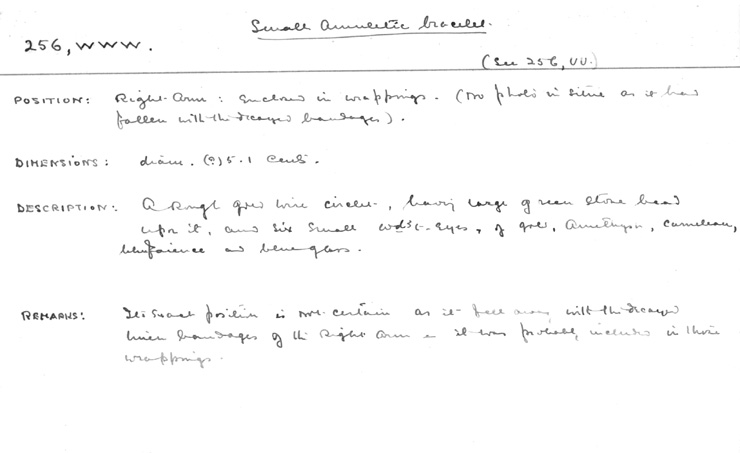 Small amuletic bracelet.
256, WWW.
(See 256, UU.)
POSITION: Right Arm: enclosed in wrappings. (No photo in situ as it had
fallen with the decayed bandages).
DIMENSIONS: diam. (?) 5.1 Cents.
DESCRIPTION: A single gold wire circlet, having large green stone bead
upon it, and six small wdзt-eyes, of gold, amethyst, carnelian,
blue faience and blue glass.
REMARKS: Its exact position is not certain as it fell away with the decayed
linen bandages of the Right Arm it was probably included in those
wrappings.